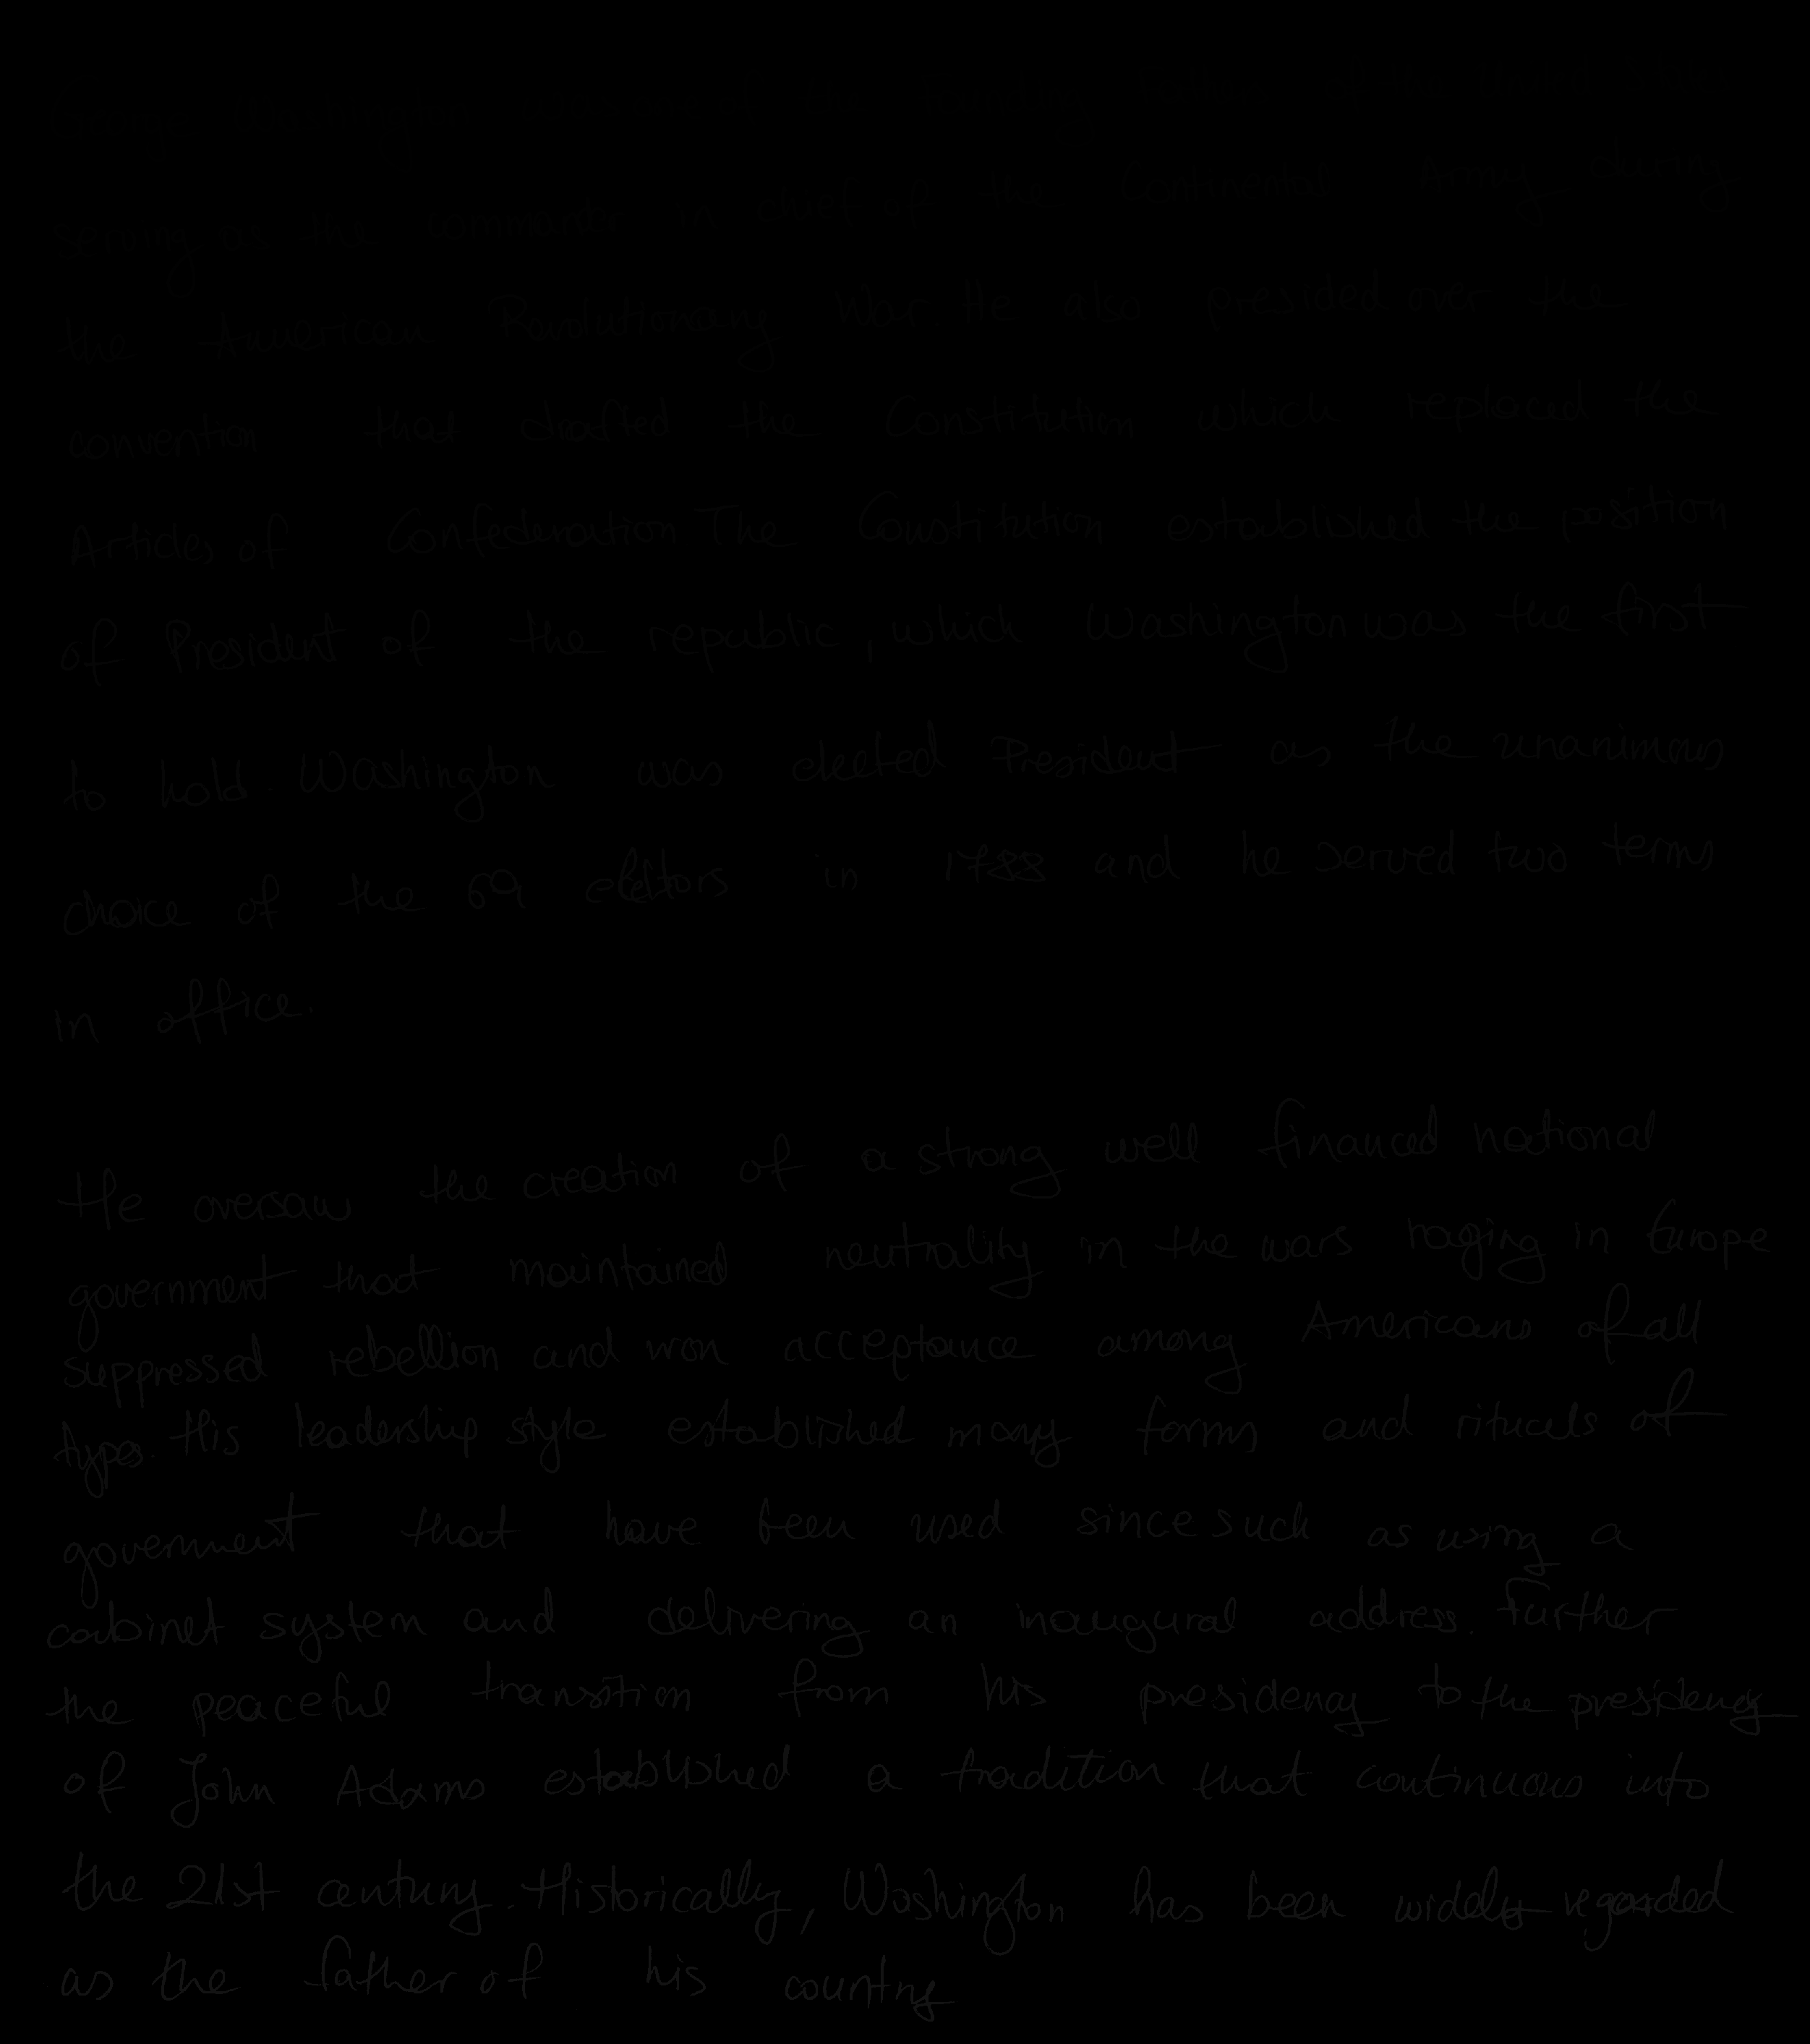 serving as the commander in chief of the Continental Army during
the American Revolutionary War. He also presided over the
convention that drafted the Constitution which replaced the
Articles of Confederation The Constitution established the position
of President of the republic, which Washington was the first
to hold. Washington was elected President as the unanimous
choice of the 69 electors in 1788 and he served two terms
in office.
He oversaw the creation of a strong well financed national
government that maintained neutrality in the wars raging in Europe
suppressed rebellion and won acceptance among Americans of all
types. His leadership style established many forms and rituals of
government that have been used since such as using a
cabinet system and delivering an inaugural address. Further
the peaceful transition from his presidency to the presidency
of John Adams established a tradition that continuous into
the 21st century. Historically, Washington has been widely regarded
as the father of his country